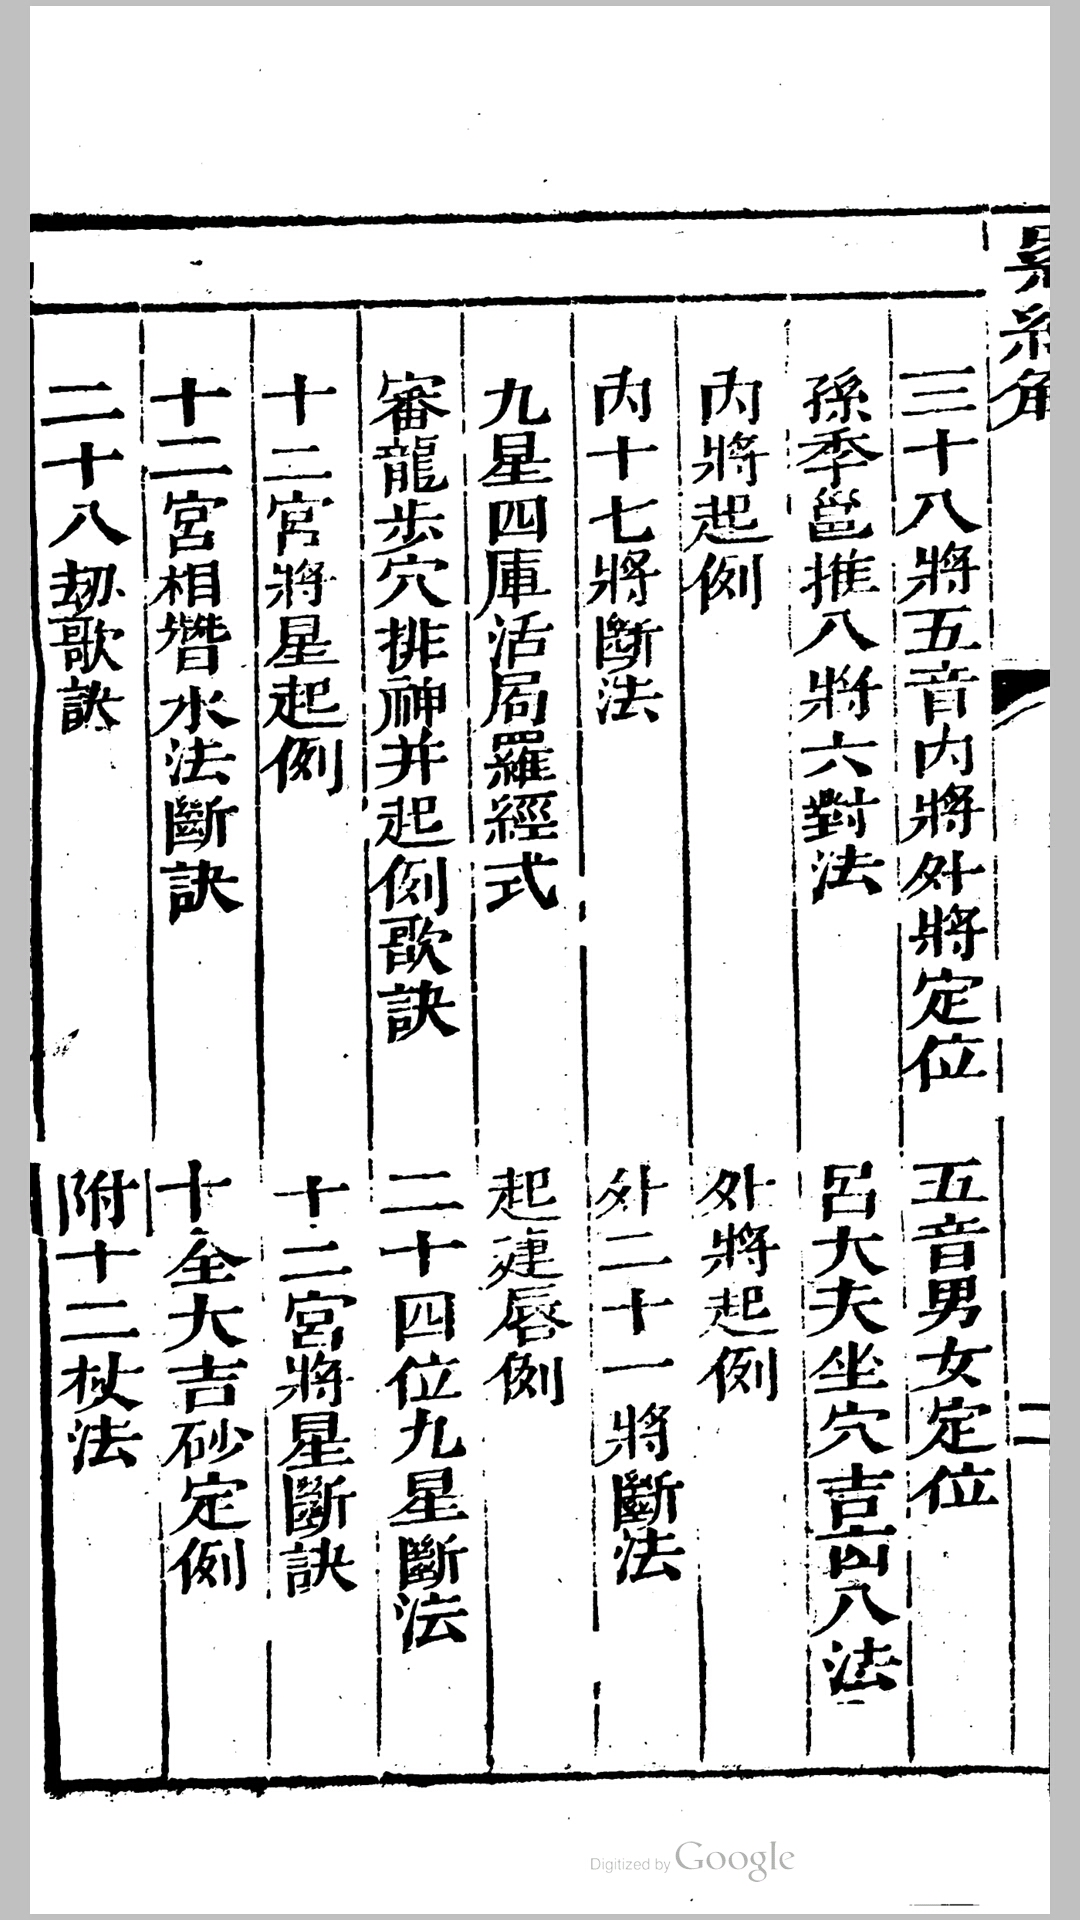 羅經解
二
三十八將五音内將外將定位　五音男女定位
孫季邕推八將六對法　呂大夫坐穴吉凶八法
内將起例　外將起例
内十七將斷法　外二十一將斷法
九星四庫活局羅經式　起建辰例
審龍步穴排神并起例歌訣　二十四位九星斷法
十二宮將星起例　十二宮將星斷訣
十二宮相水法斷訣　十全大吉砂定例
二十八劫歌訣　附十二杖法
Digitized by Google